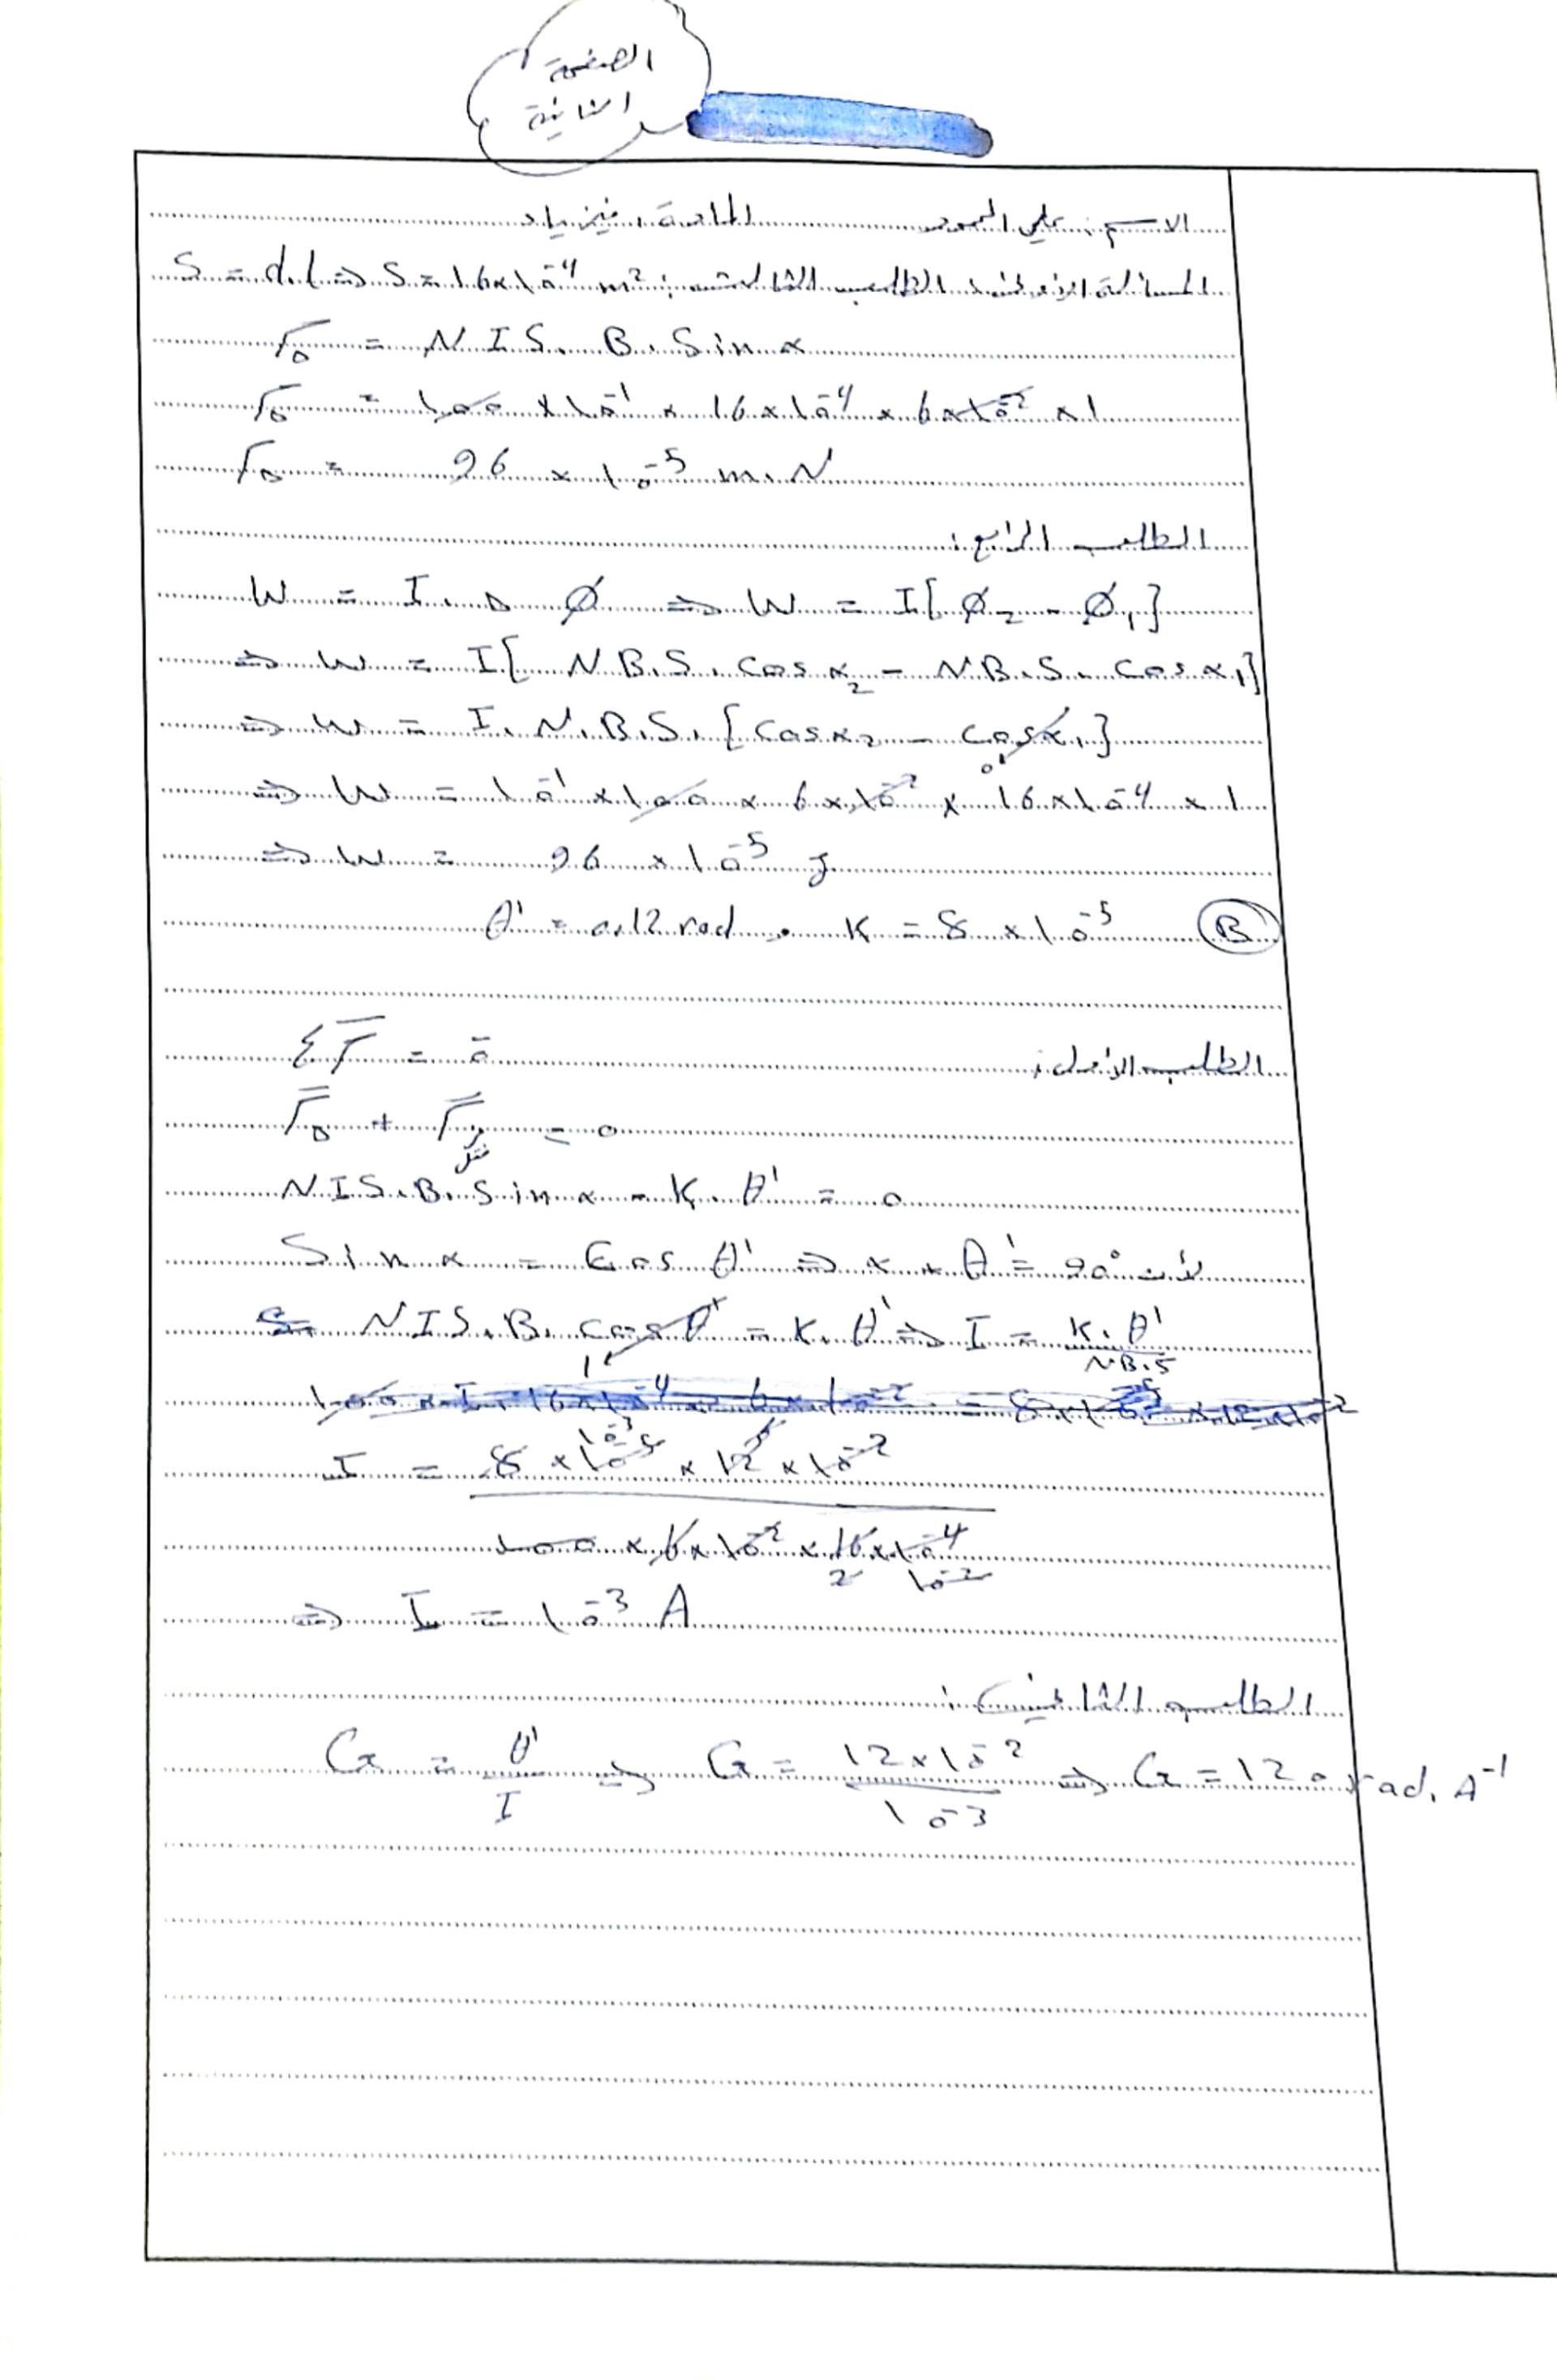 الصفحة
الثانية
الاسم: علي المادة: فيزياء
المسألة الأولى: الطلب الثالث: S = d.l ⇒ S = 16×10⁻⁴ m²
Γ_Δ = N.I.S.B.Sin α
Γ_Δ = 100 × 10⁻¹ × 16×10⁻⁴ × 6×10⁻² × 1
Γ_Δ = 96 × 10⁻⁵ m.N
الطلب الرابع:
W = I.Δ Ø ⇒ W = I[Ø₂ - Ø₁]
⇒ W = I[N.B.S.Cos α₂ - N.B.S.Cos α₁]
⇒ W = I.N.B.S.[Cos α₂ - Cos α₁] 0
⇒ W = 10⁻¹ × 100 × 6×10⁻² × 16×10⁻⁴ × 1
⇒ W = 96 × 10⁻⁵ J
(B) θ' = 0.12 rad . K = 8 × 10⁻⁵
الطلب الأول: Σ Γ̄ = 0̄
Γ̄_Δ + Γ̄_فتل = 0
N.I.S.B.Sin α - K.θ' = 0
لأن Sin α = Cos θ' ⇒ α + θ' = 90°
N.I.S.B.Cos θ' 1 = K.θ' ⇒ I = K.θ' / N.B.S
100 × I × 16×10⁻⁴ × 6×10⁻² = 8×10⁻⁵ × 12×10⁻²
I = 8 × 10⁻⁵ × 12 × 10⁻²
100 × 6×10⁻² × 16×10⁻⁴
⇒ I = 10⁻³ A
الطلب الثاني:
G = θ' / I ⇒ G = 12×10⁻² / 10⁻³ ⇒ G = 120 rad.A⁻¹